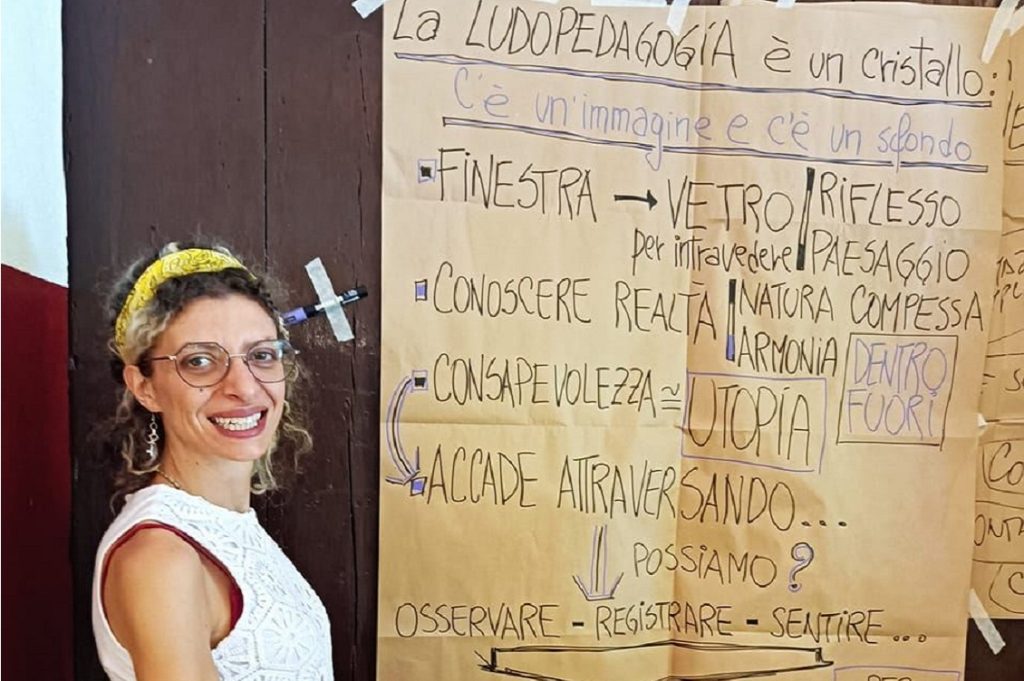 La LUDOPEDAGOGIA è un cristallo:
C'è un'immagine e c'è un sfondo
FINESTRA → VETRO RIFLESSO
per intravedere PAESAGGIO
CONOSCERE REALTÀ NATURA COMPESSA
ARMONIA
DENTRO
FUORI
CONSAPEVOLEZZA ≅ UTOPIA
ACCADE ATTRAVERSANDO...
POSSIAMO?
OSSERVARE - REGISTRARE - SENTIRE...